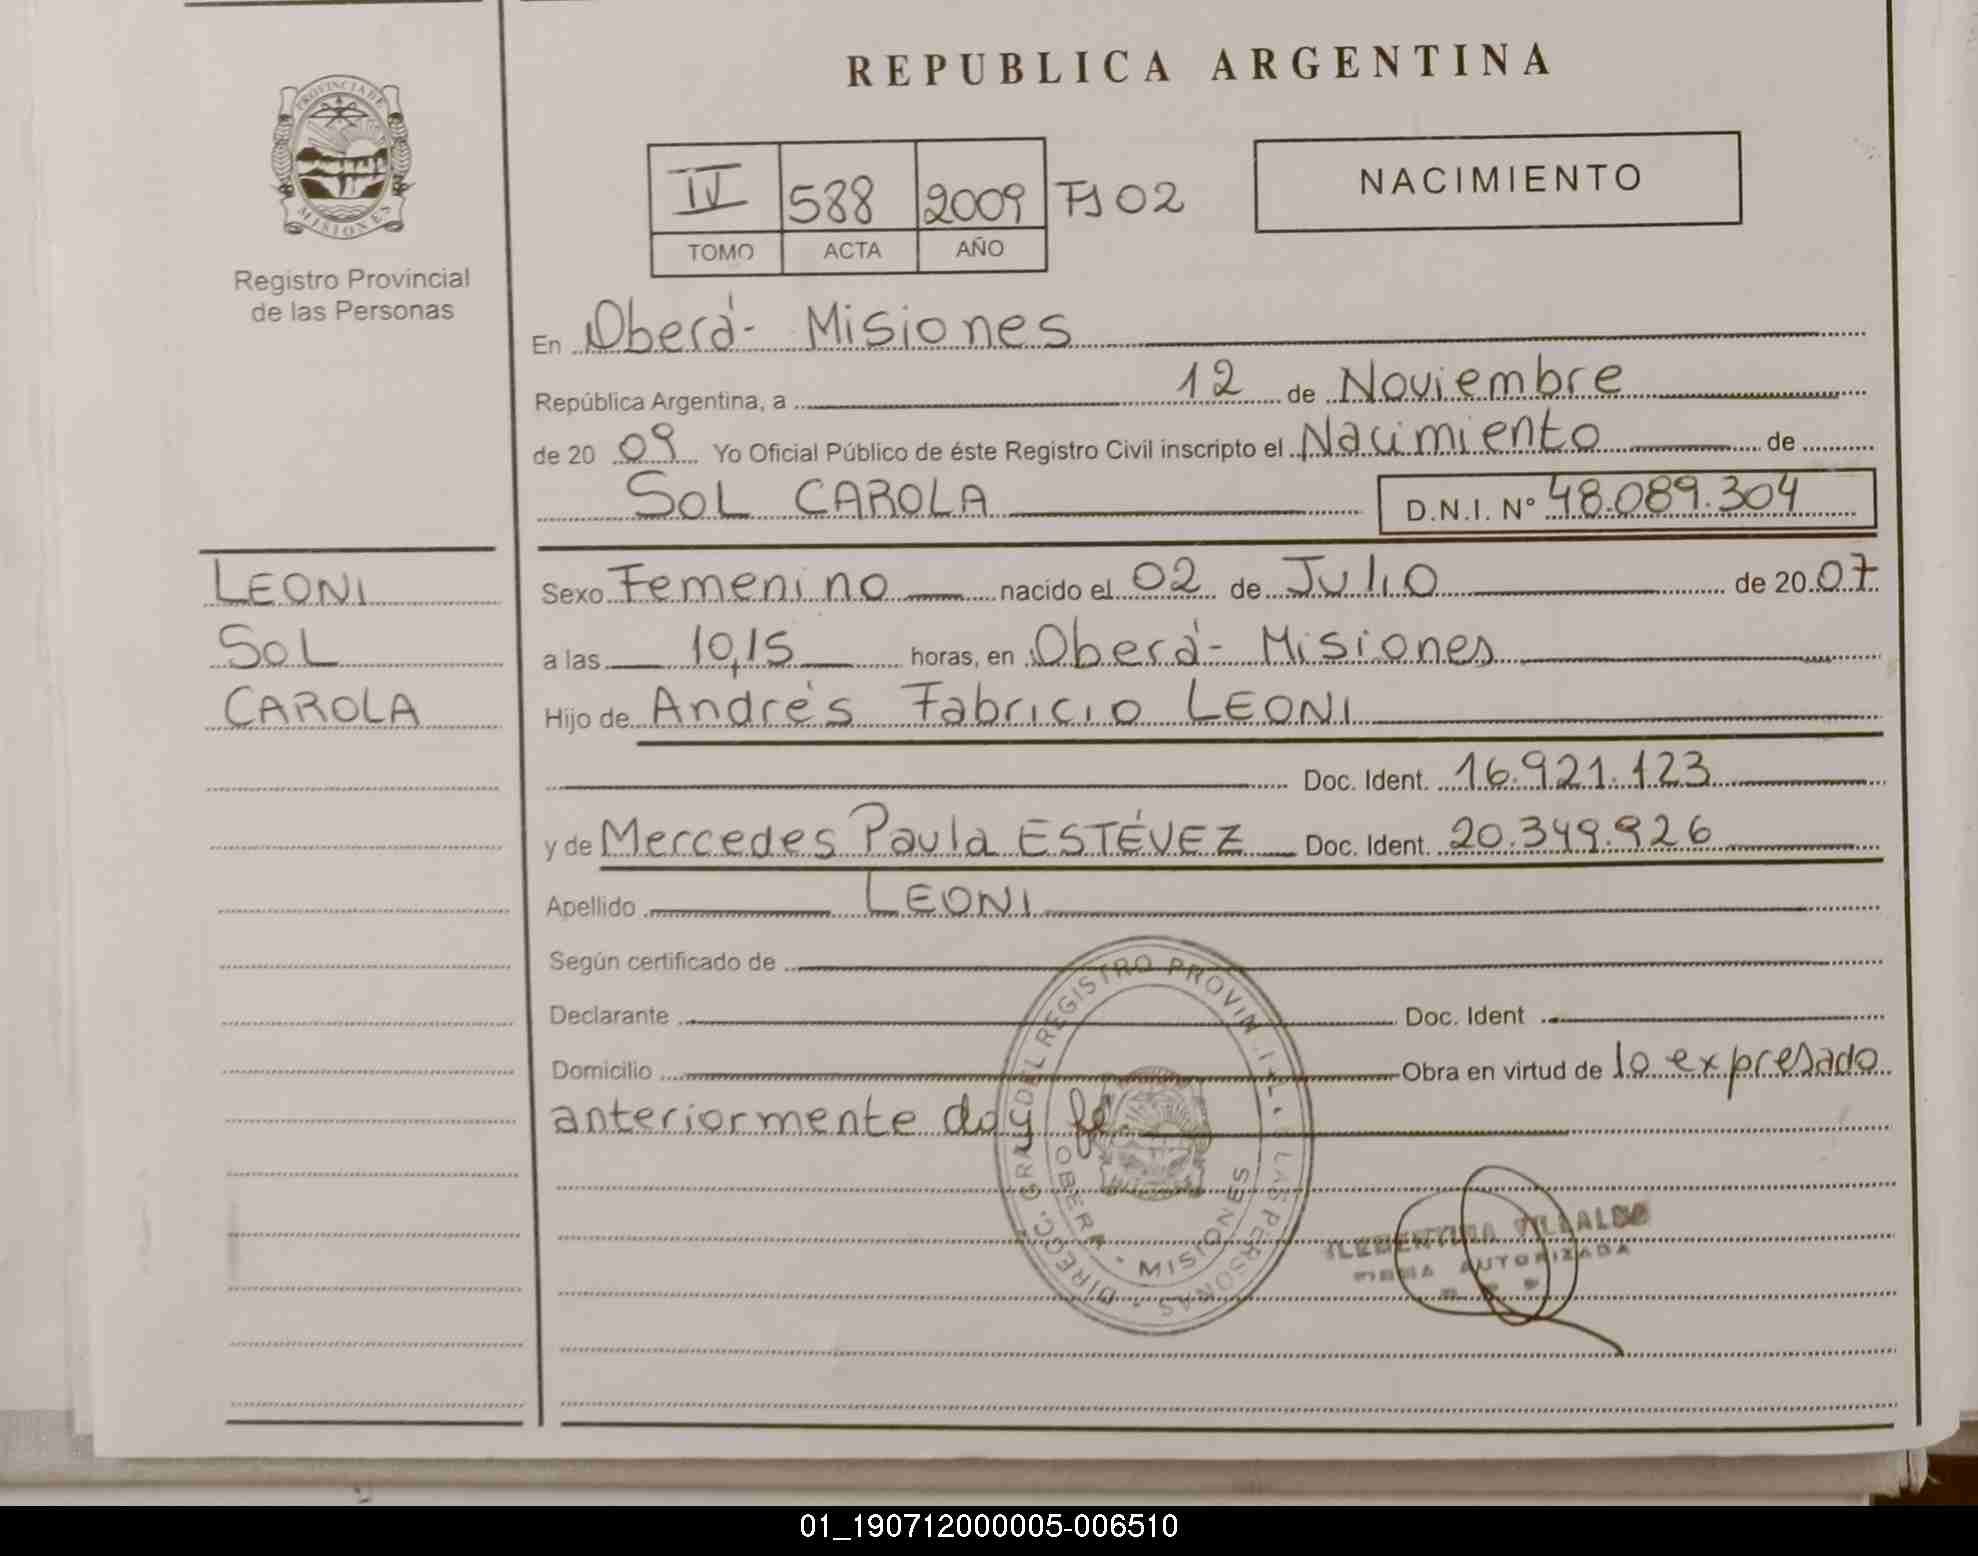 REPUBLICA ARGENTINA
PROVINCIA DE
MISIONES
Registro Provincial
de las Personas
IV 588 2009 Fº 02
TOMO ACTA AÑO
NACIMIENTO
En Oberá - Misiones
República Argentina, a 12 de Noviembre
de 20 09 Yo Oficial Público de éste Registro Civil inscripto el Nacimiento de
SOL CAROLA D.N.I. Nº 48.089.304
LEONI
SOL
CAROLA
Sexo Femenino nacido el 02 de Julio de 20 07
a las 10,15 horas, en Oberá - Misiones
Hijo de Andrés Fabricio LEONI
Doc. Ident. 16.921.123
y de Mercedes Paula ESTÉVEZ Doc. Ident. 20.349.926
Apellido LEONI
Según certificado de
Declarante Doc. Ident
Domicilio Obra en virtud de lo expresado
anteriormente doy fé.
DIRECC. GRAL DEL REGISTRO PROVINCIAL DE LAS PERSONAS
OBERA - MISIONES
VILLALBA
FIRMA AUTORIZADA
01_190712000005-006510